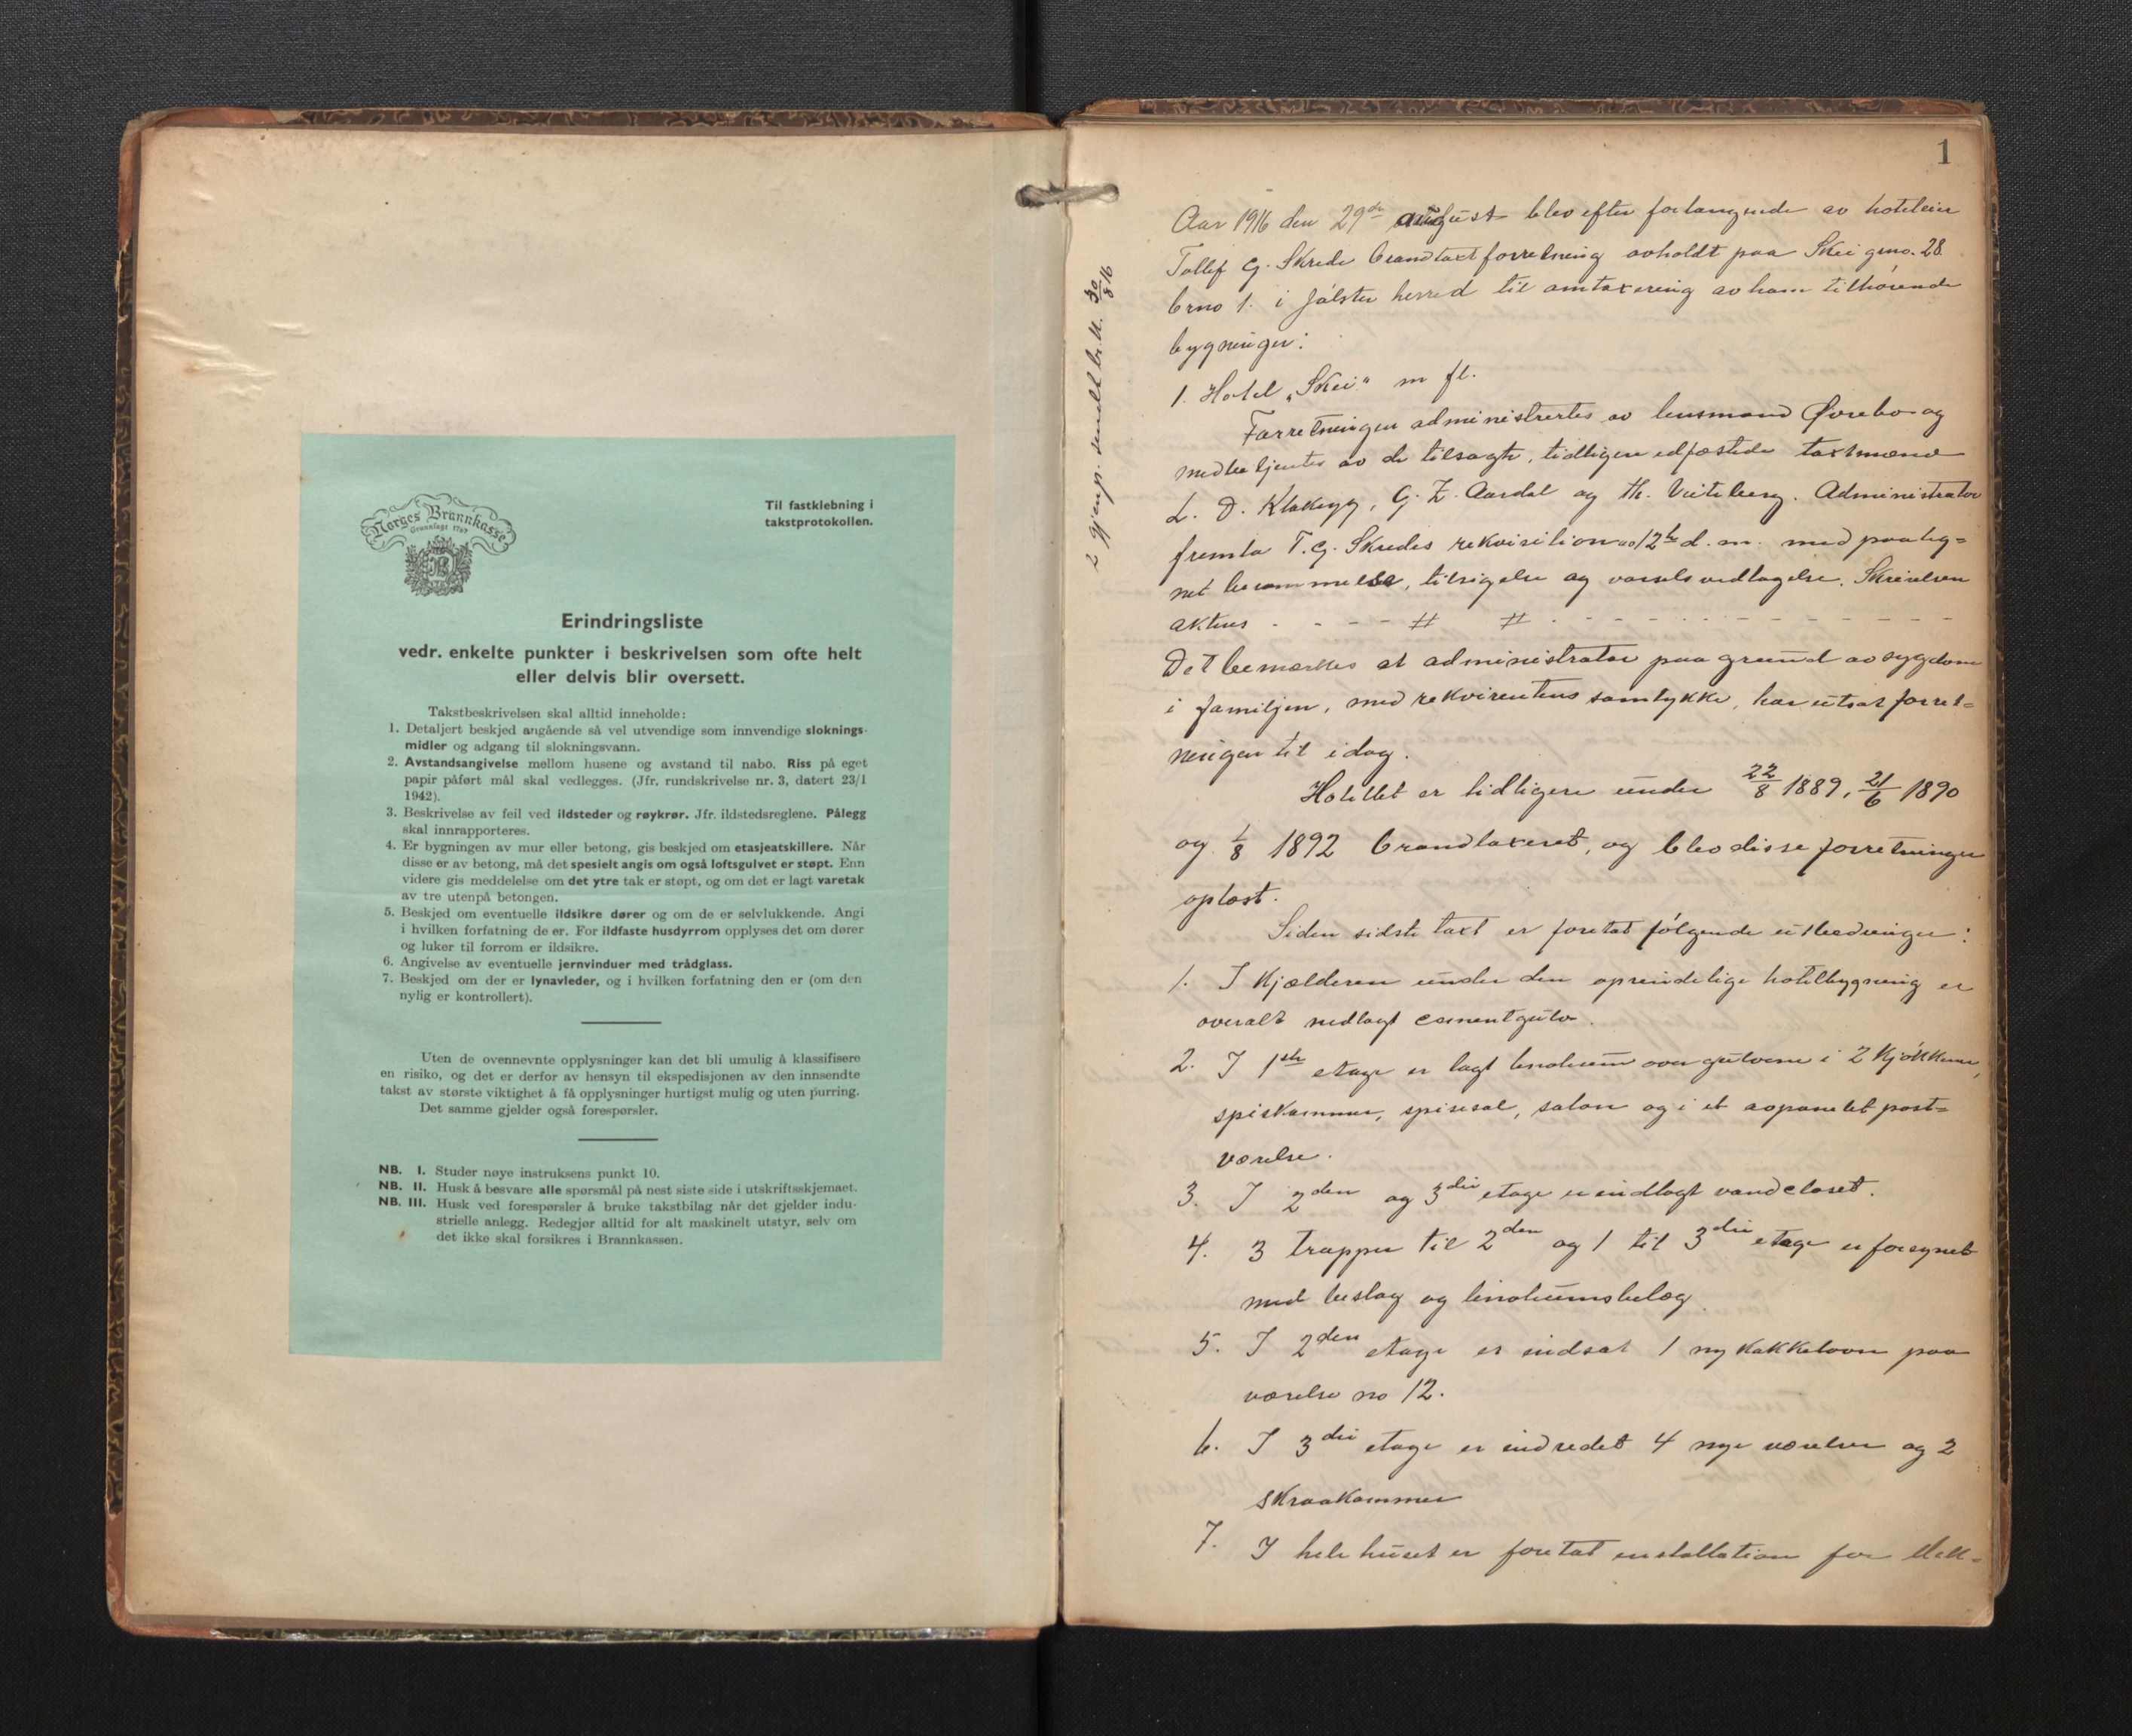 Norges Brannkasse
Grunnlagt 1767
Til fastklebning i
takstprotokollen.
Erindringsliste
vedr. enkelte punkter i beskrivelsen som ofte helt
eller delvis blir oversett.
Takstbeskrivelsen skal alltid inneholde:
1. Detaljert beskjed angående så vel utvendige som innvendige sloknings-
midler og adgang til slokningsvann.
2. Avstandsangivelse mellom husene og avstand til nabo. Riss på eget
papir påført mål skal vedlegges. (Jfr. rundskrivelse nr. 3, datert 23/1
1942).
3. Beskrivelse av feil ved ildsteder og røykrør. Jfr. ildstedsreglene. Pålegg
skal innrapporteres.
4. Er bygningen av mur eller betong, gis beskjed om etasjeatskillere. Når
disse er av betong, må det spesielt angis om også loftsgulvet er støpt. Enn
videre gis meddelelse om det ytre tak er støpt, og om det er lagt varetak
av tre utenpå betongen.
5. Beskjed om eventuelle ildsikre dører og om de er selvlukkende. Angi
i hvilken forfatning de er. For ildfaste husdyrrom opplyses det om dører
og luker til forrom er ildsikre.
6. Angivelse av eventuelle jernvinduer med trådglass.
7. Beskjed om der er lynavleder, og i hvilken forfatning den er (om den
nylig er kontrollert).
Uten de ovennevnte opplysninger kan det bli umulig å klassifisere
en risiko, og det er derfor av hensyn til ekspedisjonen av den innsendte
takst av største viktighet å få opplysninger hurtigst mulig og uten purring.
Det samme gjelder også forespørsler.
NB. I. Studer nøye instruksens punkt 10.
NB. II. Husk å besvare alle spørsmål på nest siste side i utskriftsskjemaet.
NB. III. Husk ved forespørsler å bruke takstbilag når det gjelder indu-
strielle anlegg. Redegjør alltid for alt maskinelt utstyr, selv om
det ikke skal forsikres i Brannkassen.
1
2 gjenp. sendt 30/8 16
Aar 1916 den 29de august blev efter forlangende av hoteleier
Tollef G. Skrede brandtaxtforretning avholdt paa Skei gno. 28
brno 1. i Jølster herred til omtaxering av ham tilhørende
bygninger:
1. Hotel "Skei" m fl.
Forretningen administrertes av lensmand Øvrebø og
medbetjentes av de tilsagte, tidligere edfæstede taxtmænd
L. D. Klakegg, G. Z. Aardal og Th. Veiteberg. Administrator
fremla T. G. Skredes rekvisition av 12te d. m. med paateg=
net berammelse, tilsigelse og varsels vedtagelse. Skrivelsen
aktens - - - - # # - - - - - - - - - - -
Det bemærkes at administrator paa grund av sygdom
i familjen, med rekvirentens samtykke, har utsat forret=
ningen til idag.
Hotellet er tidligere under 22/8 1889, 21/6 1890
og 1/8 1892 brandtaxeret, og blev disse forretninger
oplæst.
Siden sidste taxt er foretat følgende utbedringer:
1. I kjælderen under den oprindelige hotelbygning er
overalt nedlagt cementgulv.
2. I 1ste etage er lagt linoleum over gulvene i 2 kjøkkener,
spiskammer, spisesal, salon og i et avpanelet post=
værelse.
3. I 2den og 3die etage er indlagt vandcloset.
4. 3 trapper til 2den og 1 til 3die etage er forsynet
med beslag og linoleumsbelæg.
5. I 2den etage er indsat 1 ny kakkelovn paa
værelse no 12.
6. I 3die etage er indredet 4 nye værelser og 2
skraakammer
7. I hele huset er foretat installation for elek-